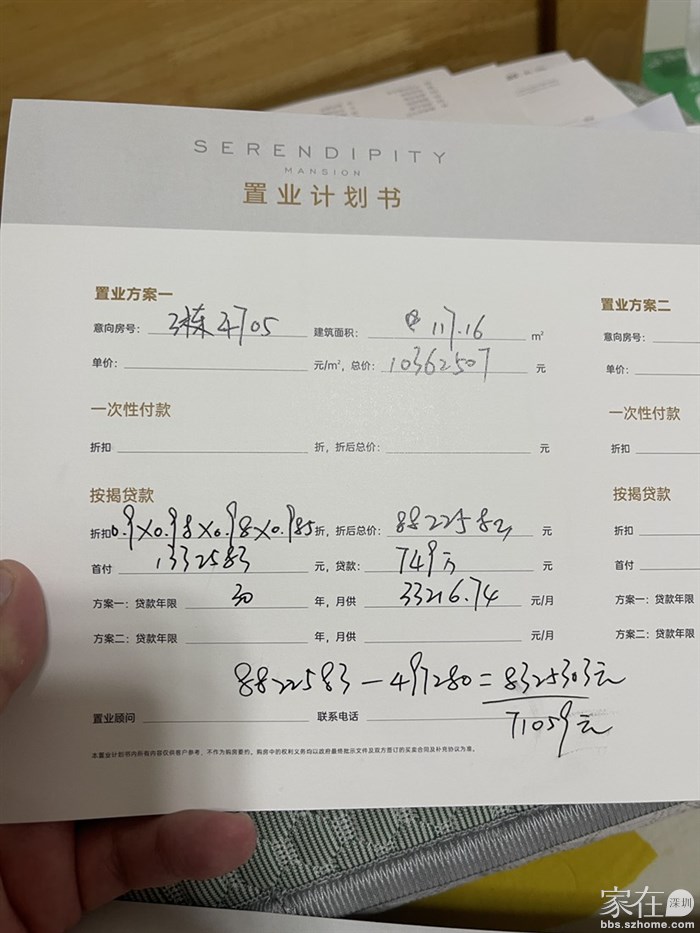 SERENDIPITY
MANSION
置业计划书
置业方案一
意向房号: 3栋 705 建筑面积: 117.16 m²
单价: 元/m², 总价: 10362507 元
一次性付款
折扣 折, 折后总价: 元
按揭贷款
折扣 0.9×0.98×0.98×0.985 折, 折后总价: 8822582 元
首付 1332583 元, 贷款: 749万 元
方案一: 贷款年限 30 年, 月供 33216.74 元/月
方案二: 贷款年限 年, 月供 元/月
8822583-497280=8325303元
71059元
置业顾问 联系电话
本置业计划书内所有内容仅供客户参考, 不作为购房要约, 购房中的权利义务均以政府最终批示文件及双方签订的买卖合同及补充协议为准。
置业方案二
意向房号:
单价:
一次性付款
折扣
按揭贷款
折扣
首付
方案一: 贷款年限
方案二: 贷款年限
家在 深圳
bbs.szhome.com